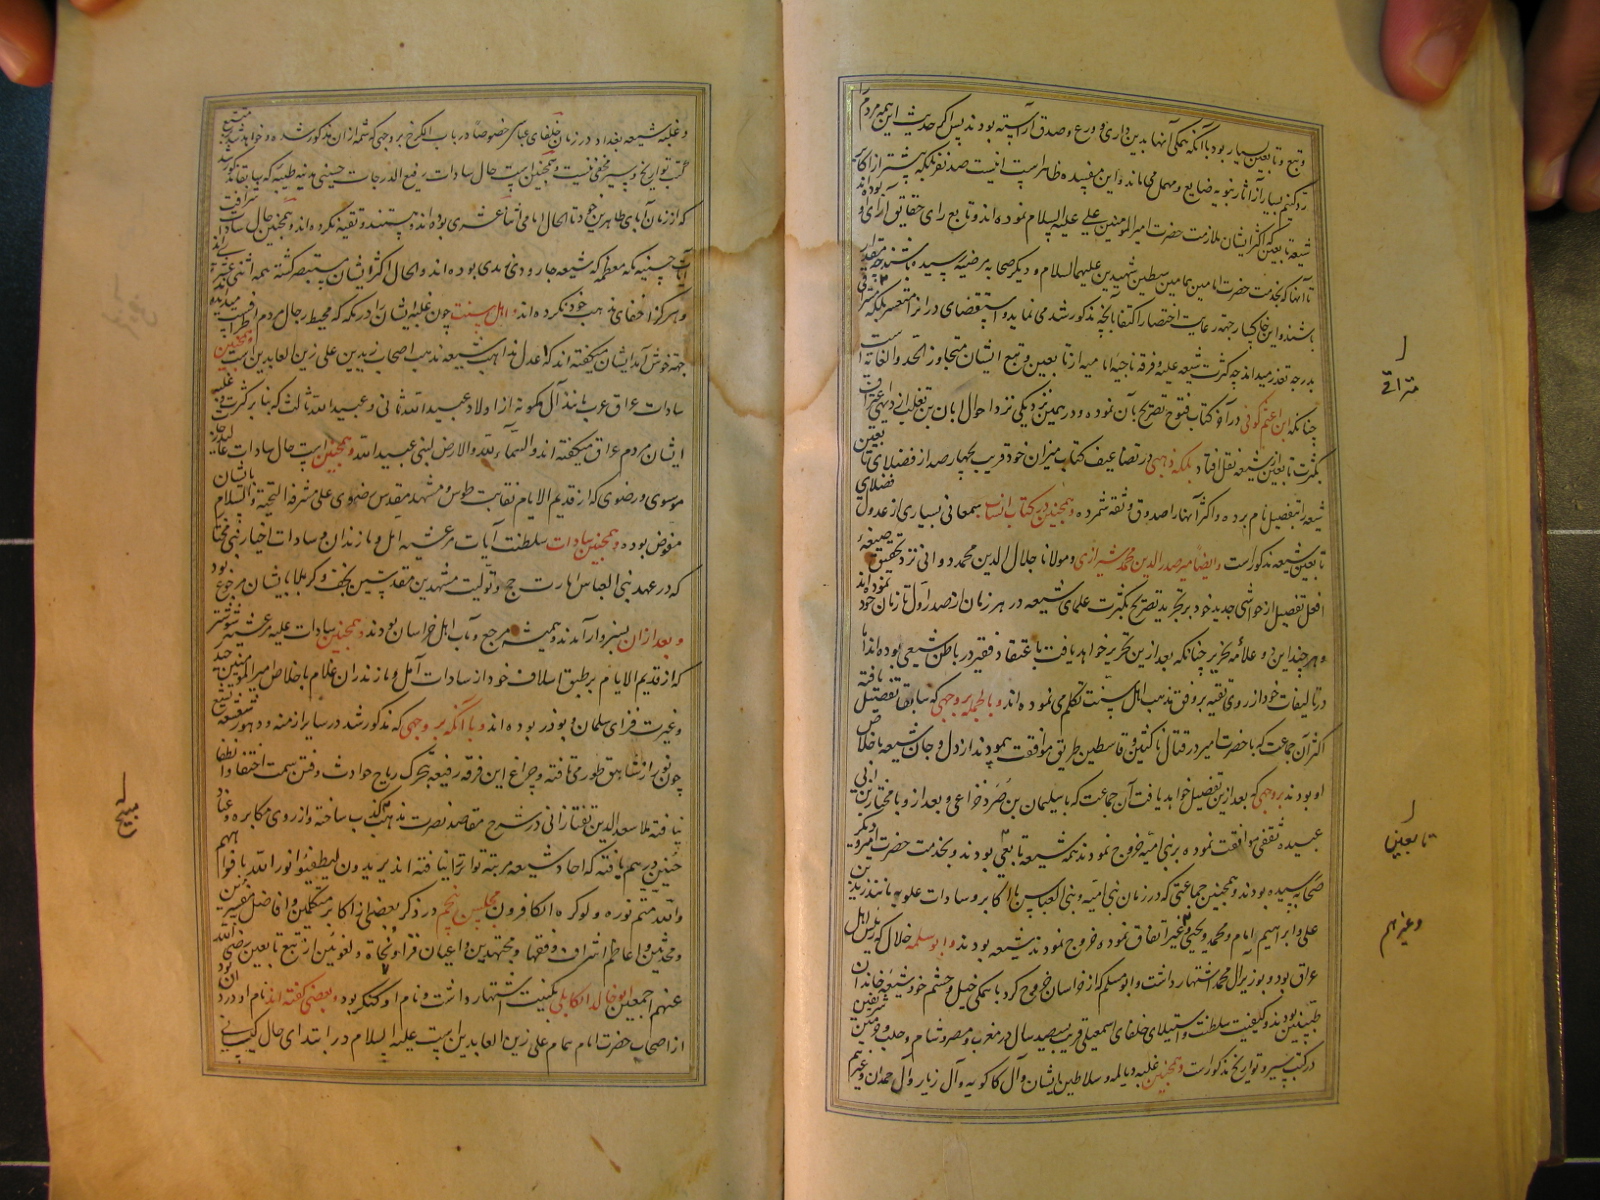 و تبع و تابعین بسیار بود با آنکه همگی آنها بدین داری و ورع و صدق آراسته بودند پس اگر حدیث این همه مردم
رد کنیم بسیار از آثار نبویه ضایع و مهمل می ماند و این مفسده ظاهر است انیست صد نفر بلکه بیشتر از اکابر
شیعه تابعین که اکثر ایشان ملازمت حضرت امیر المومنین علی علیه السلام نموده اند و تابع رای حقایق آرای او بوده اند
تا آنها که بخدمت حضرت امامین همامین سبطین شهیدین علیهما السلام و دیگر صحابه مرضیه رسیده باشند چه مقدار
باشند و این خاکسار جهت رعایت اختصار اکتفا بآنچه مذکور شد می نماید و استقصای در آنرا متعسر بلکه مترقی
بدرجه تعذر میداند چه کثرت شیعه علیه و فرقه ناجیه امامیه از تابعین و تبع ایشان متجاوز الحد و الغایة است
چنانکه ابن اعثم کوفی در آخر کتاب فتوح تصریح بآن نموده و در همین نزدیکی نزد احوال ابان بن تغلب از ذهبی اعتراف
بکثرت تابعین از شیعه نقل افتاد بلکه ذهبی در تضاعیف کتاب میزان خود قریب بچهار صد از فضلای تابعین
شیعه را بتفصیل نام برده و اکثر آنها را صدوق و ثقه شمرده و همچنین در کتاب انساب سمعانی بسیاری از عدول فضلای
تابعین شیعه مذکور است و ایضا میر صدر الدین محمد شیرازی و مولانا جلال الدین محمد دوانی نزد تحقیق صیغه
افعل تفضیل از حواشی جدید خود بر تجرید تصریح بکثرت علمای شیعه در هر زمان از صدر اول تا زمان خود نموده اند
و هر چند این دو علامه نحریر چنانکه بعد ازین تحریر خواهد یافت باعتقاد فقیر در باطن شیعی بوده اند اما
در تالیفات خود از روی تقیه بر وفق مذهب اهل سنت تکلم می نموده اند و بالجمله بر وجهی که سابقا تفصیل یافته
اکثر آن جماعت که با حضرت امیر در قتال ناکثین و قاسطین طریق موافقت پیمودند از دل و جان شیعه باخلاص
او بودند بر وجهی که بعد ازین تفصیل خواهد یافت آن جماعت که با سلیمان بن صرد خزاعی و بعد از او با مختار بن ابی
عبیده ثقفی موافقت نموده بر بنی امیه خروج نمودند همه شیعه تابعی بودند و بخدمت حضرت امیر و دیگر
صحابه رسیده بودند و همچنین جماعتی که در زمان بنی امیه و بنی العباس با اکابر و سادات علویه مانند زید بن
علی و ابراهیم امام و محمد و یحیی و غیر اتفاق نموده خروج نمودند شیعه بودند و ابو سلمه خلال که رئیس اهل
عراق بود و بوزیر آل محمد اشتهار داشت و ابو مسلم که از خراسان خروج کرد با همگی خیل و حشم خود شیعه خاندان
طیبین بودند و کیفیت سلطنت و استیلای خلفای اسمعیلی قریب بسیصد سال در مغرب و مصر و شام و حلب و حرمین شریفین
در کتب سیر و تواریخ مذکور است و همچنین غلبه دیالمه و سلاطین ایشان و آل کاکویه و آل زیار و آل حمدان و غیرهم
مترقی
تابعین
و غیرهم
و غلبه شیعه بغداد در زمان خلفای عباسی خصوصا در باب الکرخ بر وجهی که شمه از آن مذکور شده و خواهد شد بر متتبع
کتب تواریخ و سیر مخفی نیست و همچنین است حال سادات رفیع الدرجات حسینی مدنیه طیبه که سابقا مذکور شد
که از زمان آبای طاهرین خود تا الحال امامی اثنا عشری بوده اند و هستند و تقیه نکرده اند و همچنین حال سادات شرافت
آیات حسنیه مکه معظمه که شیعه جارودی زیدی بوده اند و الحال اکثر ایشان مستبصر گشته همه اثنی عشریه اند
و هرگز اخفای مذهب خود نکرده اند و اهل سنت چون غلبه ایشان را در مکه که محیط رجال مردم اطرافست میدیده اند
جهة خوش آمد ایشان میگفته اند که اعدل مذاهب شیعه مذهب اصحاب زید بن علی زین العابدین است و همچنین
سادات عراق عرب مانند آل مکونه از اولاد عبید الله ثانی و عبید الله ثالث که بنا بر کثرت و غلبه
ایشان مردم عراق میگفته اند و السماء لله و الارض لبنی عبید الله و همچنین است حال سادات عالیدرجات
موسوی و رضوی که از قدیم الایام نقابت طوس و مشهد مقدس رضوی علی مشرفه التحیة و السلام باشان
مفوض بوده و همچنین سادات سلطنت آیات مرعشیه آمل و مازندران و سادات اخیار بنی مختار
که در عهد بنی العباس امارت حج و تولیت مشهدین مقدسین نجف و کربلا بایشان مرجوع بود
و بعد از آن بسبزوار آمدند و همیشه مرجع و مآب اهل خراسان بودند و همچنین سادات علیه مرعشیه شوشتر
که از قدیم الایام بر طبق اسلاف خود از سادات آمل و مازندران غلام باخلاص امیر المومنین حیدر
و غیرت فزای سلمان و بوذر بوده اند و با آنکه بر وجهی که مذکور شد در سایر ازمنه و دهور شعشعه تشیع
چون نور از شاهق طور می تافته و چراغ این فرقه رفیعه بتحرک ریاح حوادث و فتن سمت اختفا و انطفا
نیافته ملا سعد الدین تفتازانی در شرح مقاصد نصرت مذهب کذب ساخته و از روی مکابره و عناد
چنین در هم بافته که احاد شیعه مرتبه تواترا نیافته اند یریدون لیطفئوا نور الله بافواههم
والله متم نوره و لو کره الکافرون مجلس پنجم در ذکر بعضی از اکابر متکلمین و افاضل مفسرین
و محدثین و اعاظم اشراف و فقها و مجتهدین و اعیان قراء و نحاة و لغویین از تبع تابعین رضی الله
عنهم اجمعین ابو خالد الکابلی بکنیت اشتهار داشت و نام او کنکر بود و بعضی گفته اند نام او وردان بود
از اصحاب حضرت امام همام علی زین العابدین است علیه السلام در ابتدای حال کیسانی
تشیع